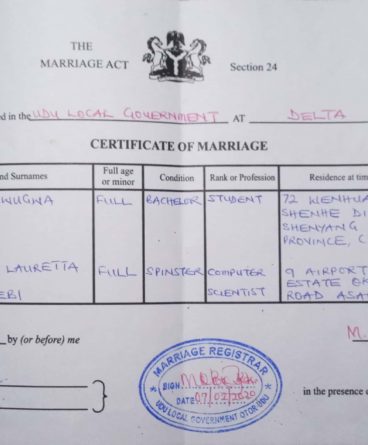 THE
MARRIAGE ACT
Section 24
ed in the UDU LOCAL GOVERNMENT AT DELTA
CERTIFICATE OF MARRIAGE
nd Surnames Full age or minor Condition Rank or Profession Residence at tim
NUGWA FULL BACHELOR STUDENT 72 WENHUA
SHENHE DI
SHENYANG
PROVINCE, C
LAURETTA FULL SPINSTER COMPUTER 9 AIRPORT
EBI SCIENTIST ESTATE OK
ROAD ASA
by (or before) me M.
MARRIAGE REGISTRAR
SIGN
DATE 07/02/2020
UDU LOCAL GOVERNMENT OTOR-UDU
in the presence o